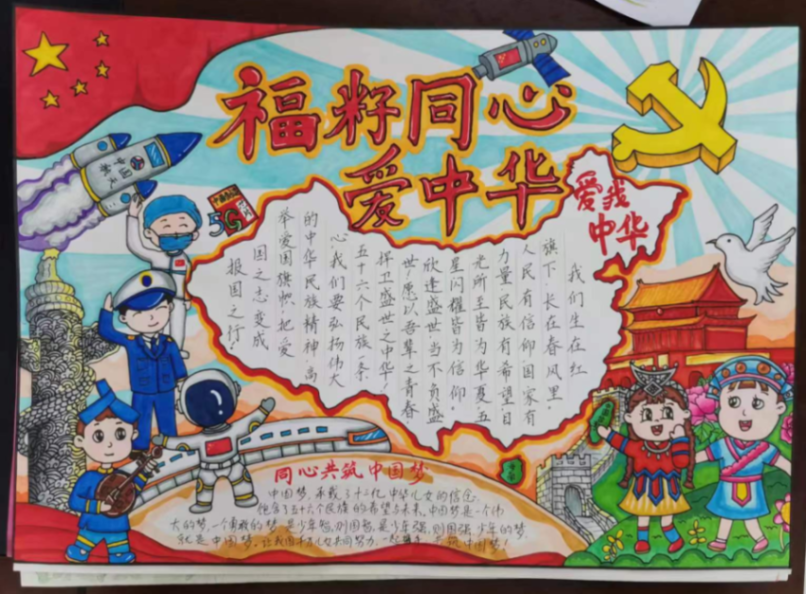 福籽同心
爱中华
爱我
中华
中国航天
5G
我们生在红
旗下·长在春风里·
人民有信仰国家有
力量民族有希望·目
光所至皆为华夏·五
星闪耀皆为信仰·
欣逢盛世·当不负盛
世·愿以吾辈之青春·
捍卫盛世之中华·
五十六个民族一条
心我们要弘扬伟大
的中华民族精神高
举爱国旗帜·把爱
国之志变成
报国之行·
同心共筑中国梦
中国梦,承载了十三亿中华儿女的信念,
包含了五十六个民族的希望与未来,中国梦是一个伟
大的梦,一个勇敢的梦,是少年智,则国智,是少年强,则国强,少年的梦,
就是中国梦,让我们中华儿女共同努力,一起筑中国梦!